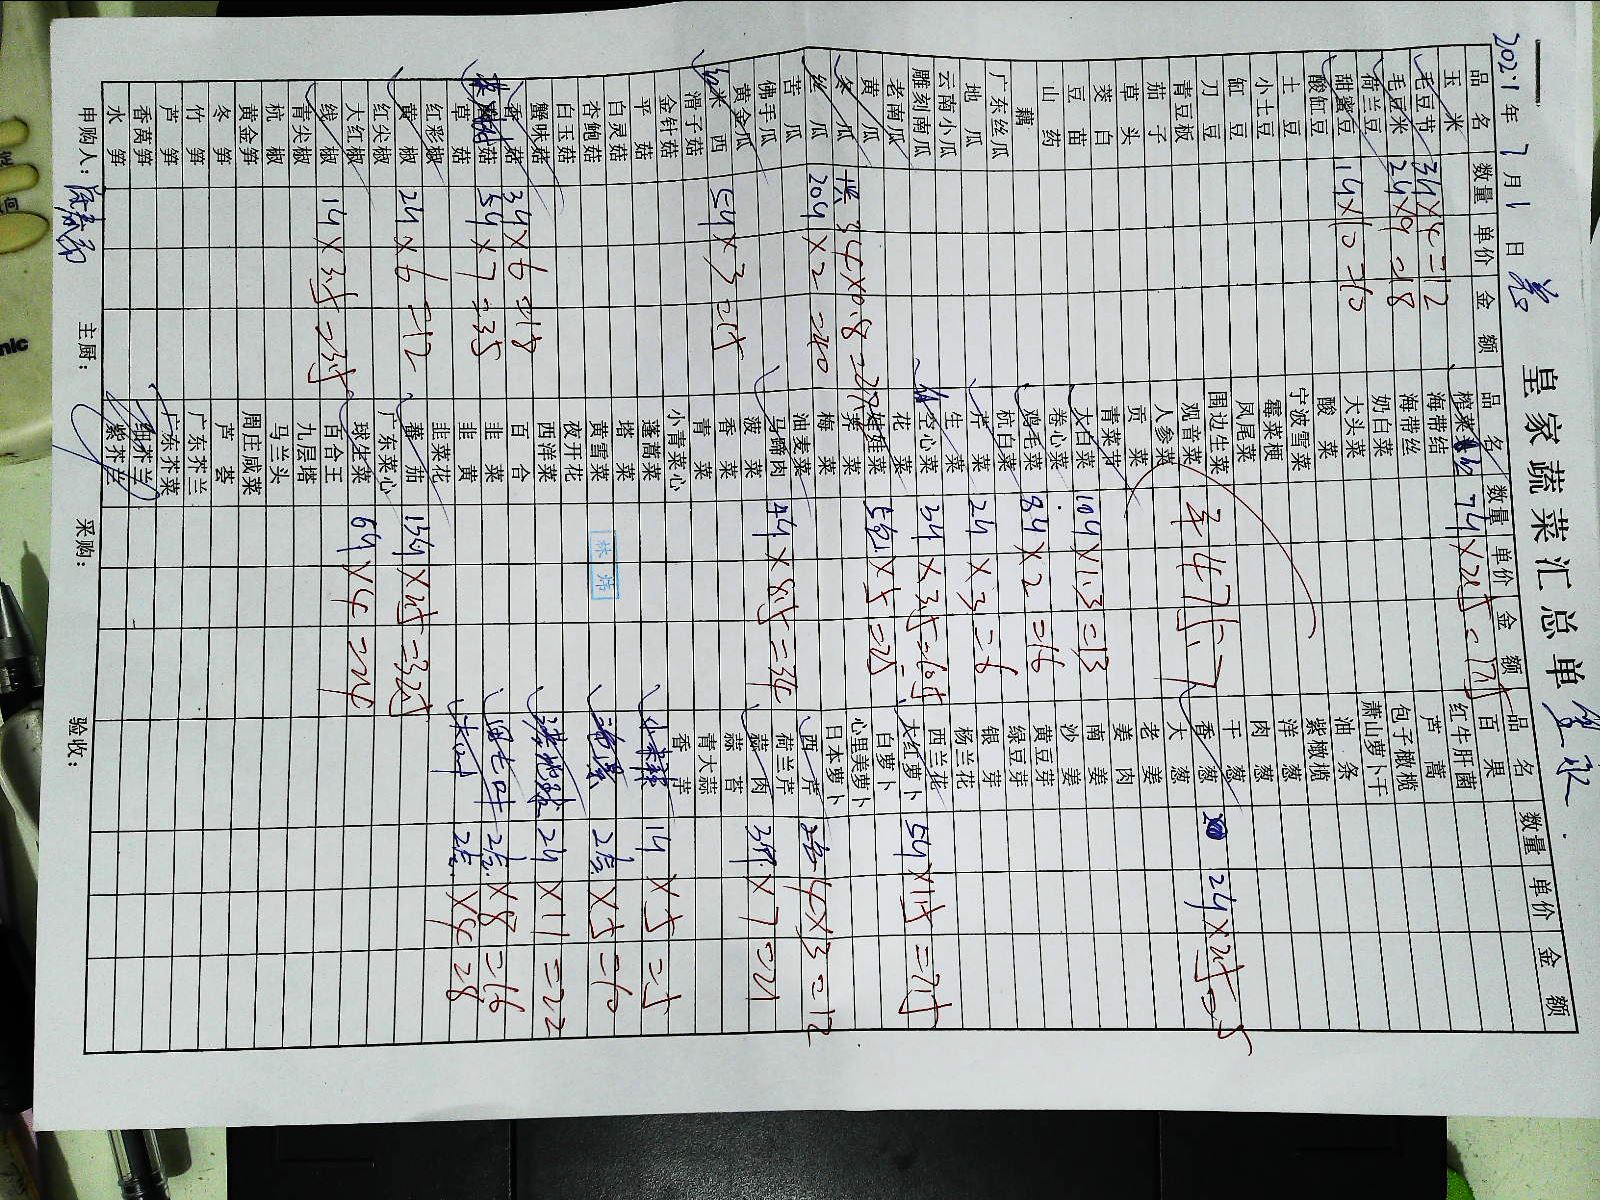 皇家蔬菜汇总单
2021年7月1日
品名 数量 单价 金额 品名 数量 单价 金额 品名 数量 单价 金额
玉米
毛豆节 3斤×4=12
毛豆米 2斤×9=18
荷兰豆
甜蜜豆 1斤×10=10
酸缸豆
土豆
小土豆
缸豆
刀豆
青豆板
茄子
草头
茭白
豆苗
山药
藕
广东丝瓜
地瓜
云南小瓜
雕刻南瓜
老南瓜
黄瓜
冬瓜 34×0.8=27
丝瓜 20斤×2=40
苦瓜
佛手瓜
黄金瓜
西 5斤×3=15
滑子菇
金针菇
平菇
白灵菇
杏鲍菇
白玉菇
蟹味菇
香菇 3斤×6=18
草菇 5斤×7=35
红彩椒
黄椒 2斤×6=12
红尖椒
大红椒
线椒 1斤×35=35
青尖椒
杭椒
黄金笋
冬笋
竹笋
芦笋
香莴笋
水笋
榨菜 7斤×25=175
海带结
海带丝
奶白菜
大头菜
酸菜
宁波雪菜
霉菜梗
凤尾菜
围边生菜
观音菜
人参菜
贡菜
青菜
大白菜 10斤×1.3=13
卷心菜
鸡毛菜 8斤×2=16
杭白菜
芹菜 2斤×3=6
生菜
空心菜 3斤×35=105
花菜
娃娃菜 5×5=25
荠菜
梅菜
油麦菜
马蹄肉 4斤×85=34
菠菜
香菜
青菜
小青菜心
蓬蒿菜
塔菜
黄雪菜
夜开花
西洋菜
百合
韭菜
韭黄
韭菜花
蕃茄 13斤×25=325
广东菜心
球生菜 6斤×4=24
百合王
九层塔
马兰头
周庄咸菜
芦荟
广东芥兰
广东芥菜
细芥兰
紫芥兰
百果
红牛肝菌
芦蒿
包子橄榄
萧山萝卜干
油条
紫橄榄
洋葱
肉葱
干葱
香葱 2斤×25=5
大葱
老姜
姜肉
南姜
沙姜
黄豆芽
绿豆芽
银芽
杨兰花
西兰花
大红萝卜 5斤×15=75
白萝卜
心里美萝卜
日本萝卜
西芹 4×3=12
荷兰芹
蒜肉 3斤×7=21
蒜苔
青大蒜
香芋
1斤×5=5
2×5=10
2斤×11=22
2×8=16
2×4=8
林炜
申购人： 主厨： 采购： 验收：